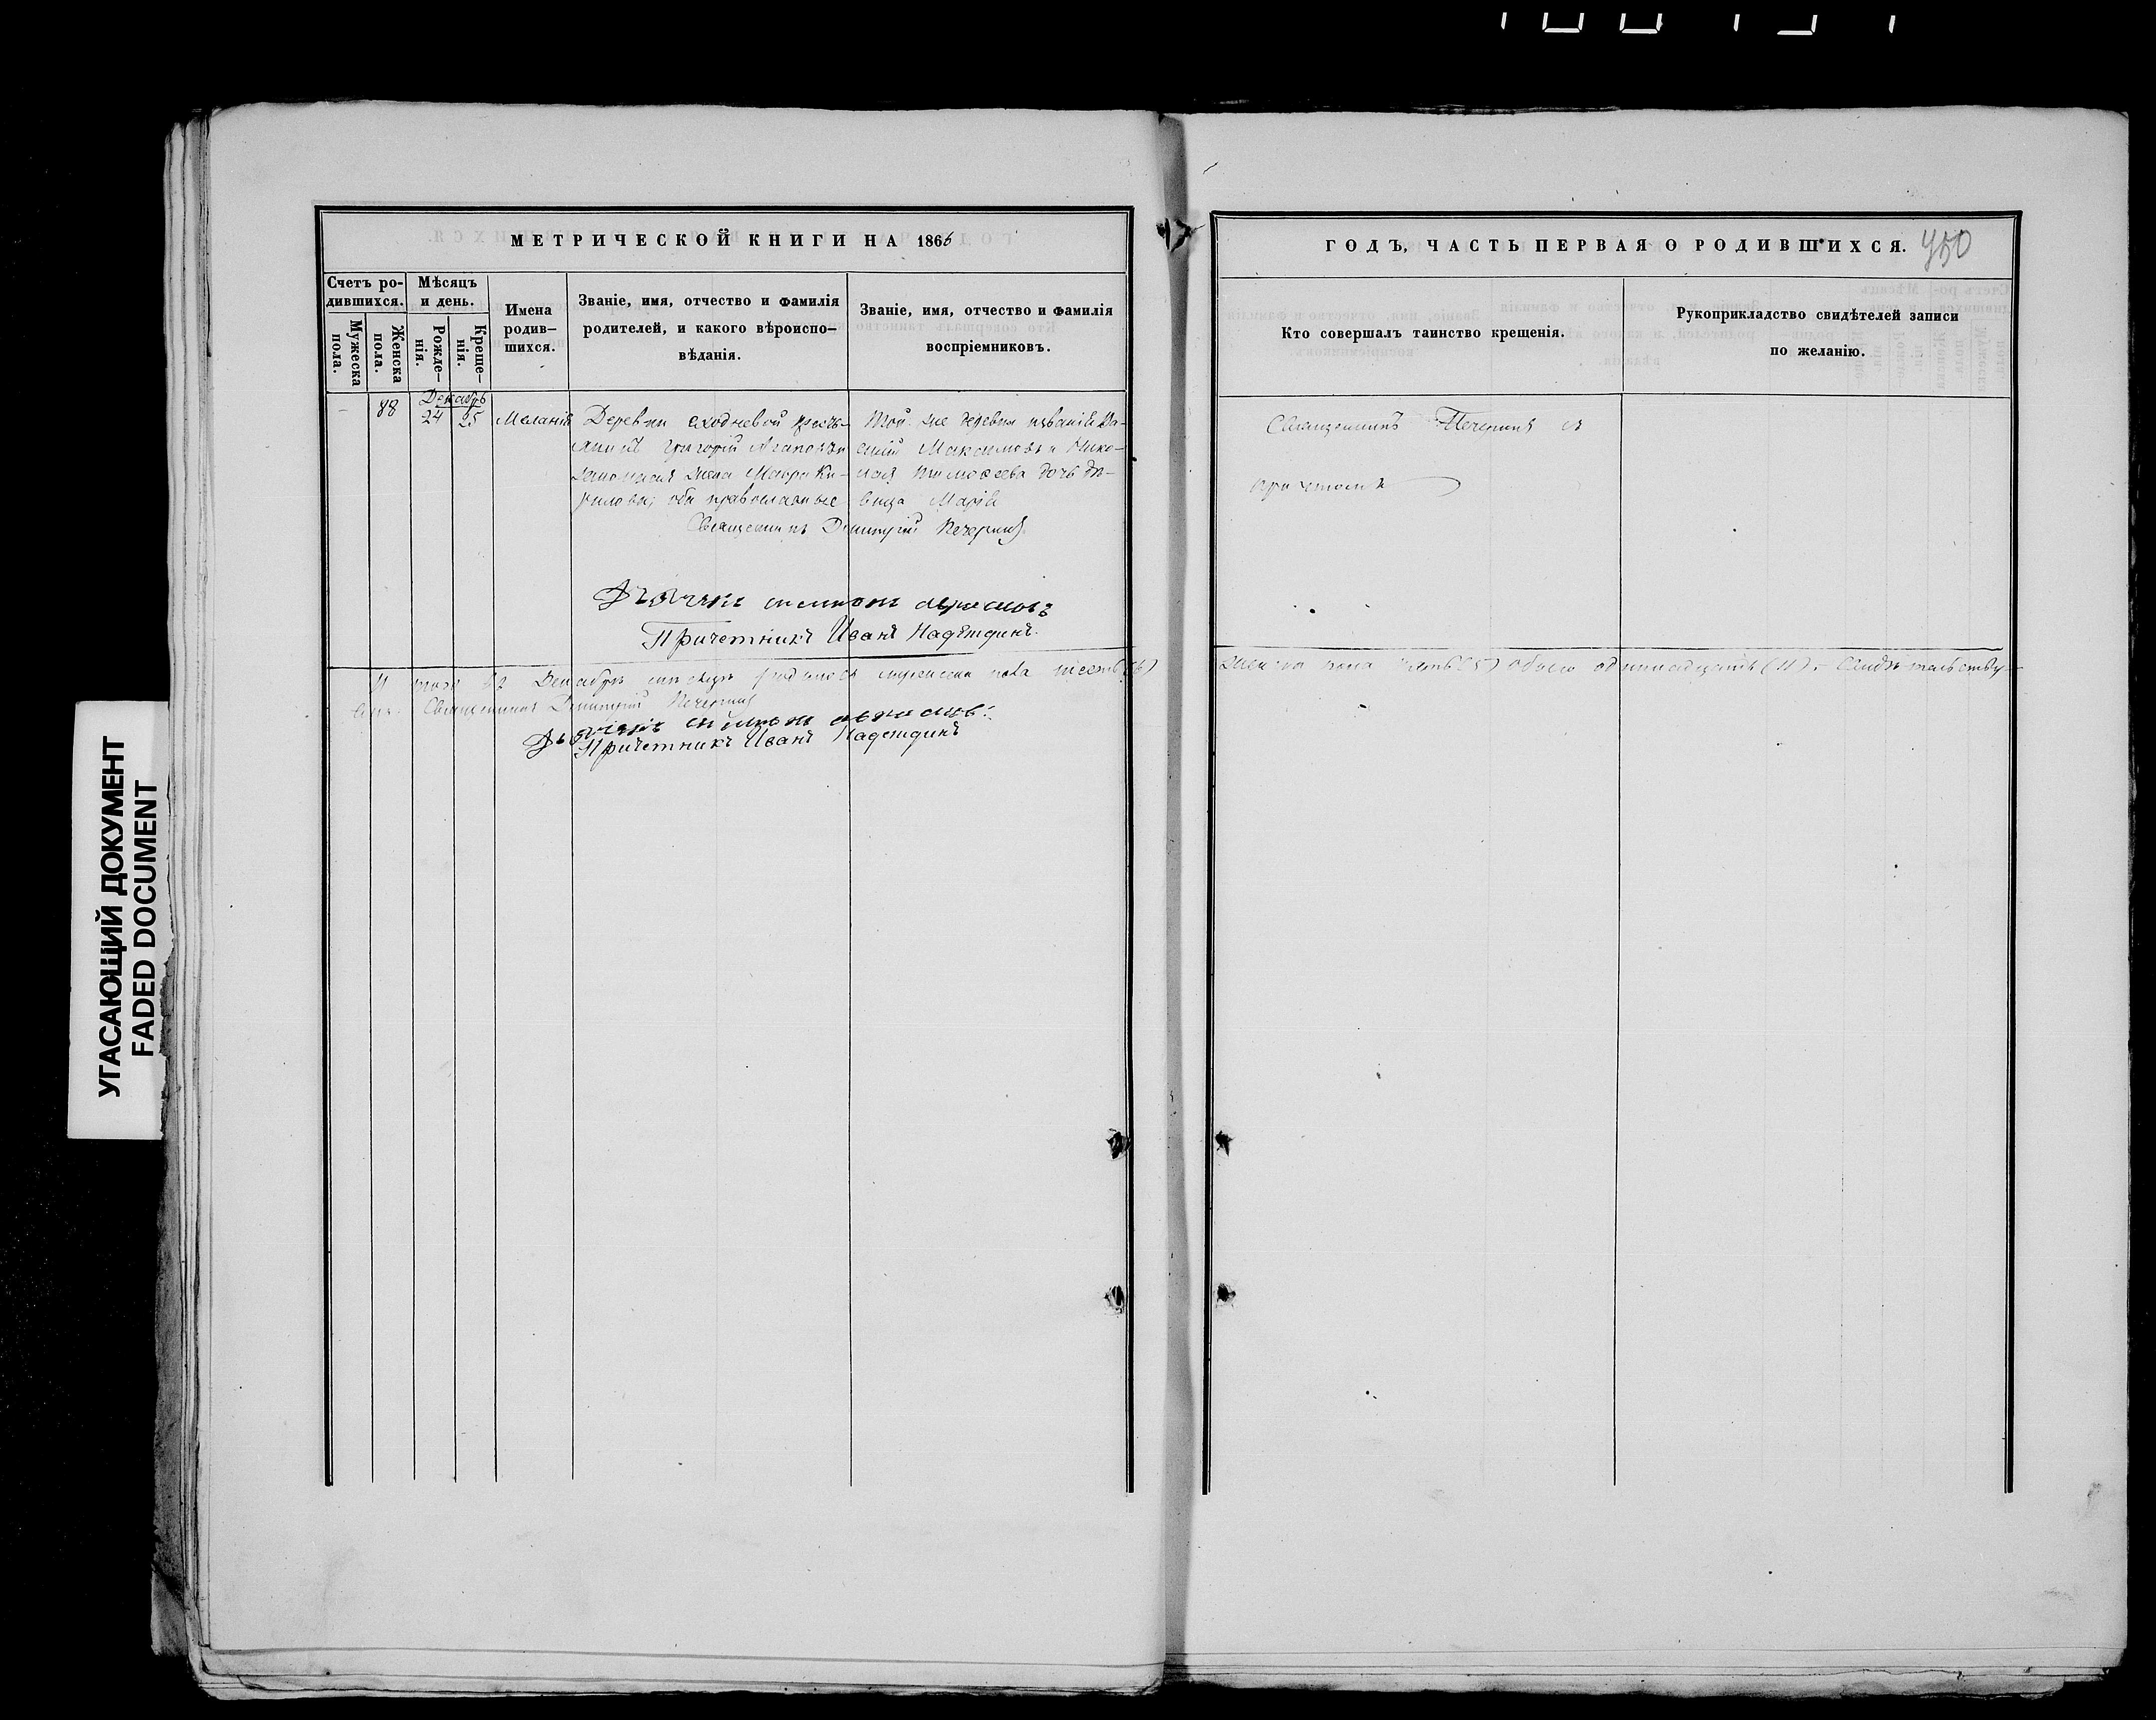 МЕТРИЧЕСКОЙ КНИГИ НА 1866
Счетъ ро-
дившихся.
Мужеска
пола.
Женска
пола.
Мѣсяцъ
и день.
Рожде-
нія.
Креще-
нія.
Имена
родив-
шихся.
Званіе, имя, отчество и фамилія
родителей, и какого вѣроиспо-
вѣданія.
Званіе, имя, отчество и фамилія
воспріемниковъ.
Декабрь
88 24 25 Меланія
Деревни кресть-
янинъ Григорій Агаповъ и
законная жена Мавра Ки-
рилова; оба православные
Той же деревни Ва-
силій Максимовъ и Нико-
лая Тимофеева дочь дѣ-
вица Марія
Священникъ Димитрій Печеринъ
Дьячекъ
Причетникъ Иванъ Надеждинъ.
Декабрѣ мѣсяцѣ родилось мужеска пола шесть (6)
Священникъ Димитрій Печеринъ
Дьячекъ
Причетникъ Иванъ Надеждинъ
ГОДЪ, ЧАСТЬ ПЕРВАЯ О РОДИВШИХСЯ.
950
Кто совершалъ таинство крещенія.
Рукоприкладство свидѣтелей записи
по желанію.
Священникъ Печеринъ съ
причтомъ
женска пола пять (5) обоего одиннадцать (11).
УГАСАЮЩИЙ ДОКУМЕНТ
FADED DOCUMENT